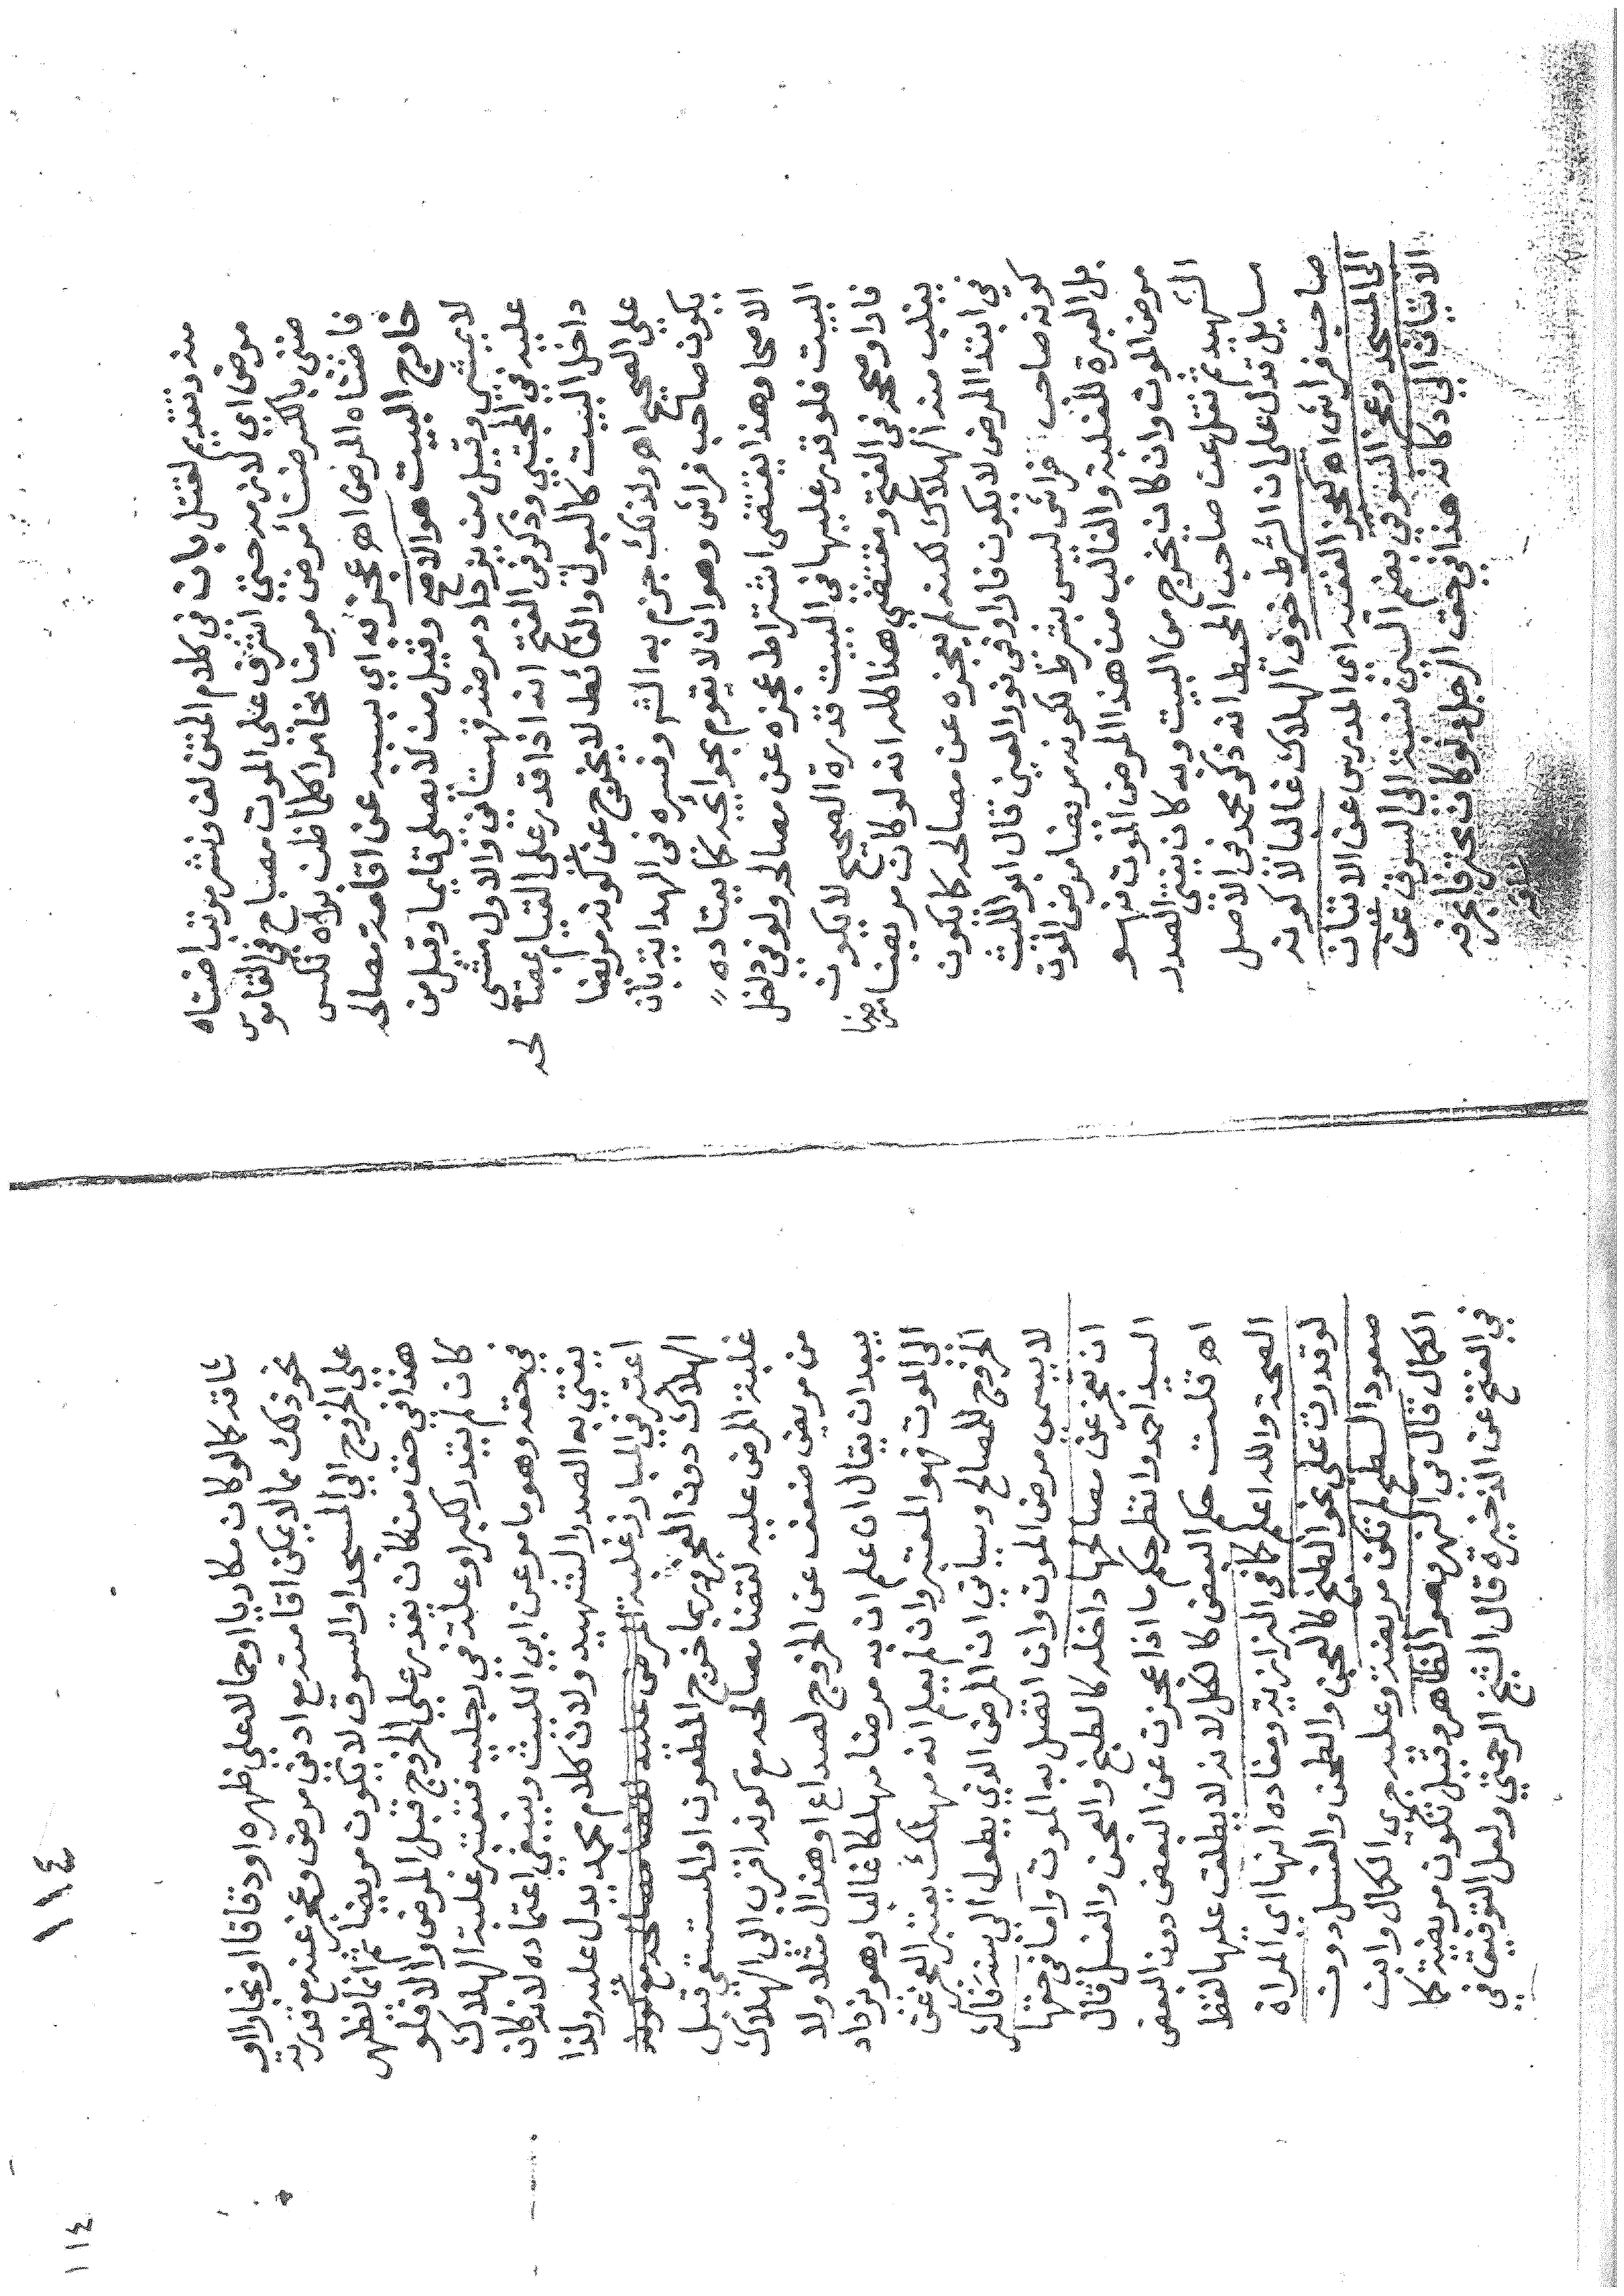 منه وتقديم لقتل بان في كلام المتن لف ونشر مرتب اضناه
مرض اي لازمه حتي اشرف على الموت مصباح في القاموس
ضني بالكسر ضنا مرض مرضا مخامرا كلما ظن براه نكس
فاضناه المرض اه عجز به اي بسببه عن اقامة مصالحه
خارج البيت هو الاصح وقيل من لا يصلي قايما وقيل من
لا يمشي وقيل من يزداد مرضه قهستاني والاول مشي
عليه في المجتبي وذكر في الفتح انه اذا قدر على القيام بمصالحه
داخل البيت كالبول والغائط لا يخرج عن كونه مريضا
على الصحيح اه ولذلك جزم به الشم وفسره في الهداية بان
يكون صاحب فراش وهو ان لا يقوم بحوايجه كما يعتاده
الاصحا وهذا يقتضى اشتراط عجزه عن مصالحه ولو في داخل
البيت فلو قدر عليها في البيت قدرة الصحيح لا يكون
فارا وصحح في الفتح ومقتضي هذا كله انه لو كان مريضا مرضا
يغلب منه الهلاك لكنه لم يعجزه عن مصالحه كما يكون
في ابتدا المرض لا يكون فارا وفي نور العين قال ابو الليث
كونه صاحب فراش ليس بشرط لكونه مريضا مرض الموت
بل العبرة للغلبة والغالب من هذا المرض الموت فهو
مرض الموت وان كان يخرج من البيت وبه كان يفتي الصدر
الشهيد ثم نقل عن صاحب المحيط انه ذكر محمد في الاصل
مسايل تدل على ان الشرط خوف الهلاك غالبا لا كونه
صاحب فراش اه كعجز الفقيه اي المدرس عن الاتيان
الى المسجد وعجز السوقي بضم السين نسبة الى السوق عن
الاتيان الي دكانه هذا في حق الرجل لو كان محترفا بحرفه
شاقة كالو كان مكاريا او حمالا على ظهره او دقاقا او نجارا او
نحو ذلك مما لا يمكن اقامته مع ادنى مرض وعجز عنه مع قدرته
على الخروج الي المسجد او السوق لا يكون مريضا ثم انما يظهر
هذا في حق من كان يقدر على الخروج قبل المرض والا فلو
كان لم يقدر لكبر او علة في رجليه فتعتبر غلبة الهلاك
في حقه وهو ما مر عن ابي الليث وينبغي اعتماده لانه كان
يفتي به الصدر الشهيد ولان كلام محمد يدل عليه ولذا
اعتبر في المبارز غلبة المرض عليه لقضا مصالحه مع كونه
الهلاك دون العجز وربما خرج المطعون او المستسقي قبل
غلبة المرض عليه لقضا مصالحه مع كونه اقرب الى الهلاك
من مريض ضعف عن الخروج لصداع او هذال مثلا ولا
يبعد ان يقال ان علم ان به مرضا مهلكا غالبا وهو يزداد
الى الموت فهو المعتبر وان لم يعلم انه مهلك يعتبر العجز عن
الخروج للمصالح وسياتي ان المرض الذي يطول الي سنة فاكثر
لا يسمى مرض الموت وان اتصل به الموت واما في حقها
ان تعجز عن مصالحها داخله كالطبخ والعجن والغسل قال
السيد احمد وانظر حكم ما اذا عجزت عن البعض دون البعض
اه قلت حكم البعض كالكل لانه لا يطلق عليها لفظ
الصحة والله اعلم كما في البزازية ومفاده انها اي المراة
لو قدرت على نحو الطبخ كالعجن والطحن والغسل دون
صعود السطح لم تكن مريضة وعليه جري الكمال وابن
الكمال قال في النهر وهو الظاهر وقيل تكون مريضة كما
في الفتح عن الذخيرة قال الشيخ الرحمتي ولعل التوفيق في
١١٤
١١٤